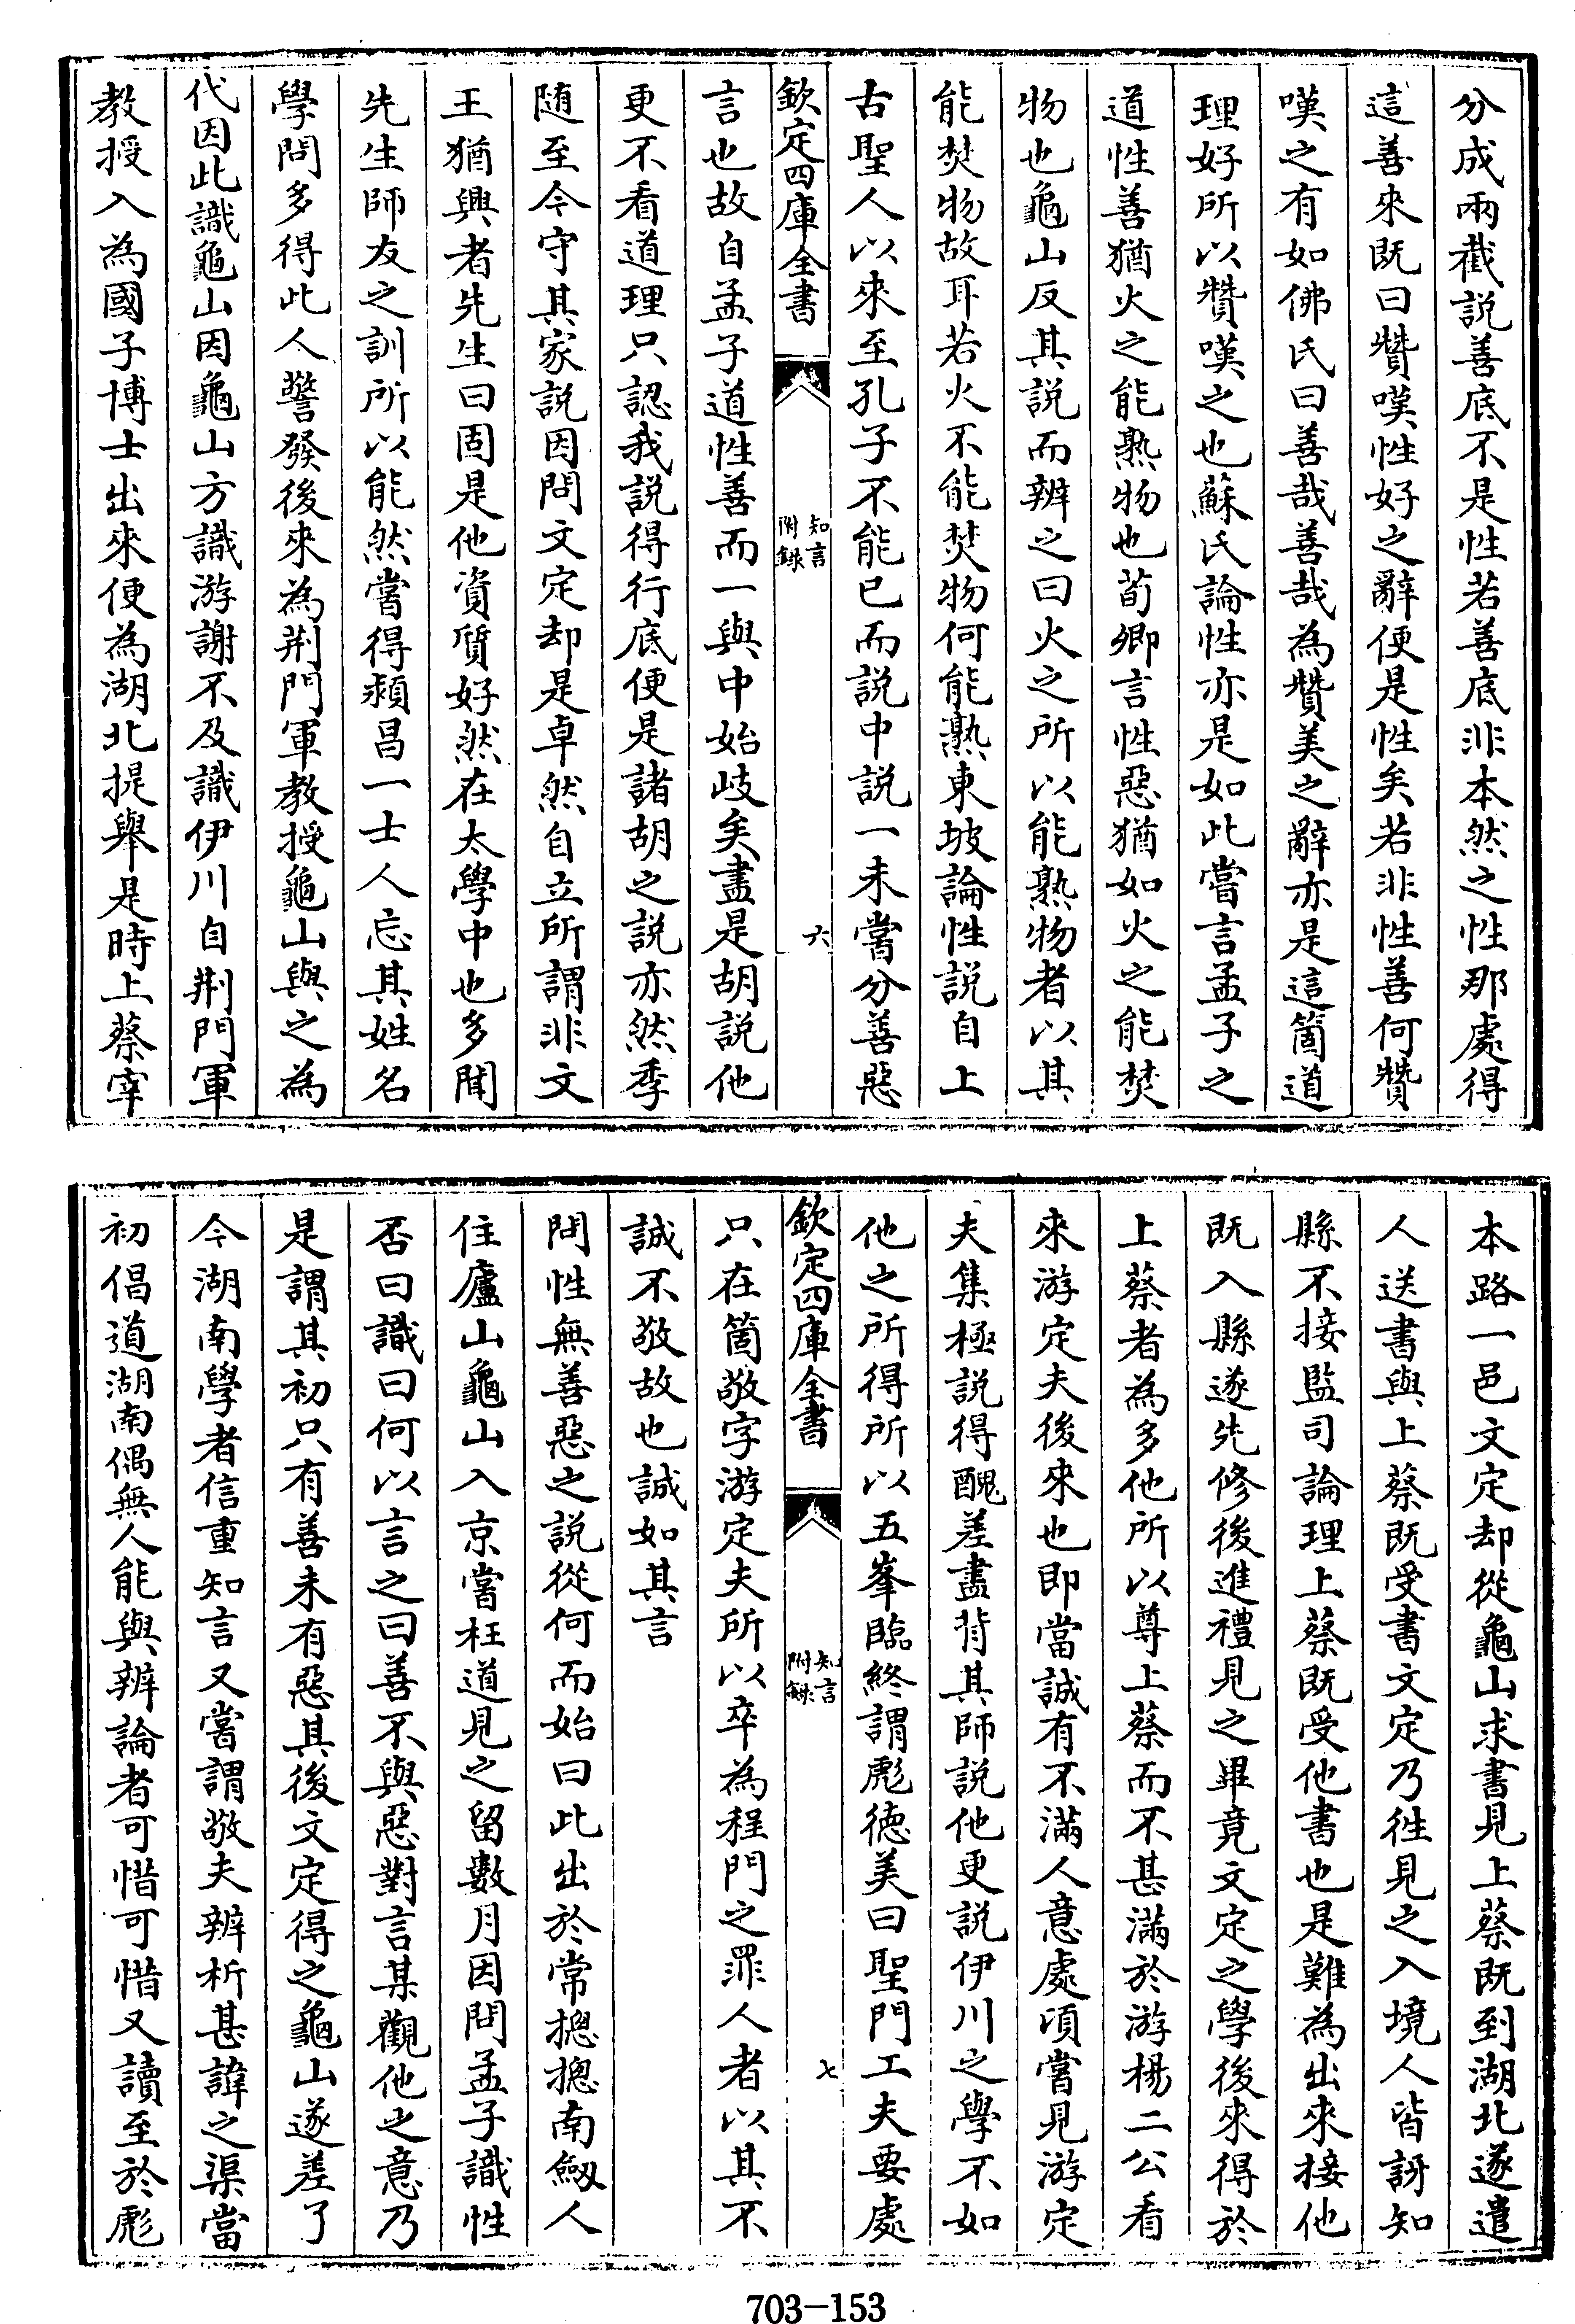 分成兩截説善底不是性若善底非本然之性那處得
這善來既曰贊嘆性好之辭便是性矣若非性善何贊
嘆之有如佛氏曰善哉善哉為贊美之辭亦是這箇道
理好所以贊嘆之也蘇氏論性亦是如此嘗言孟子之
道性善猶火之能熟物也荀卿言性惡猶如火之能焚
物也龜山反其説而辨之曰火之所以能熟物者以其
能焚物故耳若火不能焚物何能熟東坡論性説自上
古聖人以來至孔子不能已而説中説一未嘗分善惡
欽定四庫全書
知言
附錄
六
言也故自孟子道性善而一與中始岐矣盡是胡説他
更不看道理只認我説得行底便是諸胡之説亦然季
随至今守其家説因問文定却是卓然自立所謂非文
王猶興者先生曰固是他資質好然在太學中也多聞
先生師友之訓所以能然嘗得潁昌一士人忘其姓名
學問多得此人警發後來為荆門軍教授龜山與之為
代因此識龜山因龜山方識游謝不及識伊川自荆門軍
教授入為國子博士出來便為湖北提舉是時上蔡宰
本路一邑文定却從龜山求書見上蔡既到湖北遂遣
人送書與上蔡既受書文定乃徃見之入境人皆訝知
縣不接監司論理上蔡既受他書也是難為出來接他
既入縣遂先修後進禮見之畢竟文定之學後來得於
上蔡者為多他所以尊上蔡而不甚滿於游楊二公看
來游定夫後來也即當誠有不滿人意處頃嘗見游定
夫集極説得醜差盡背其師説他更説伊川之學不如
他之所得所以五峯臨終謂彪德美曰聖門工夫要處
欽定四庫全書
知言
附錄
七
只在箇敬字游定夫所以卒為程門之罪人者以其不
誠不敬故也誠如其言
問性無善惡之説從何而始曰此出於常摠摠南劔人
住廬山龜山入京嘗枉道見之留數月因問孟子識性
否曰識曰何以言之曰善不與惡對言某觀他之意乃
是謂其初只有善未有惡其後文定得之龜山遂差了
今湖南學者信重知言又嘗謂敬夫辨析甚諱之渠當
初倡道湖南偶無人能與辨論者可惜可惜又讀至於彪
703-153